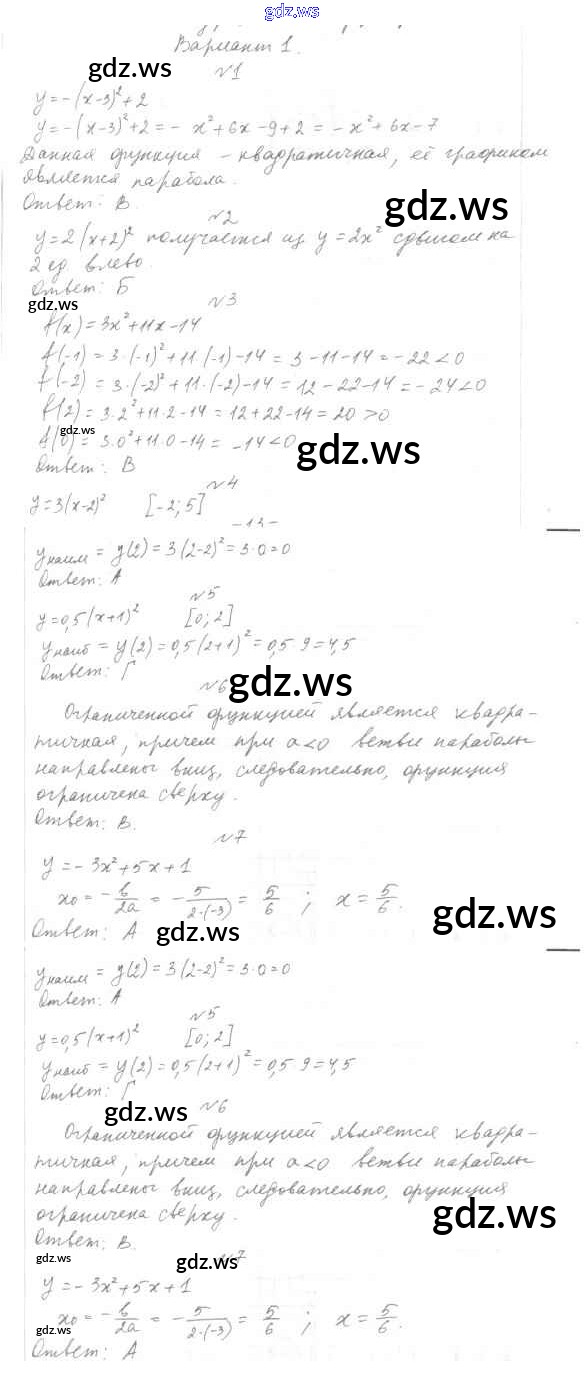 gdz.ws
Вариант 1.
gdz.ws
№1
y=-(x-3)²+2
y=-(x-3)²+2=-x²+6x-9+2=-x²+6x-7
Данная функция - квадратичная, её графиком
является парабола.
Ответ: В.
gdz.ws
№2
y=2(x+2)² получается из y=2x² сдвигом на
2 ед. влево.
Ответ: Б
gdz.ws
№3
f(x)=3x²+11x-14
f(-1)=3·(-1)²+11·(-1)-14=3-11-14=-22<0
f(-2)=3·(-2)²+11·(-2)-14=12-22-14=-24<0
f(2)=3·2²+11·2-14=12+22-14=20>0
gdz.ws
f(0)=3·0²+11·0-14=-14<0
gdz.ws
Ответ: В
№4
y=3(x-2)² [-2;5]
-13-
yнаим=y(2)=3(2-2)²=3·0=0
Ответ: А
№5
y=0,5(x+1)² [0;2]
yнаиб=y(2)=0,5(2+1)²=0,5·9=4,5
Ответ: Г
gdz.ws
№6
Ограниченной функцией является квадра-
тичная, причем при a<0 ветви параболы
направлены вниз, следовательно, функция
ограничена сверху.
Ответ: В.
№7
y=-3x²+5x+1
x₀=-b/2a=-5/2·(-3)=5/6; x=5/6.
gdz.ws
Ответ: А
gdz.ws
yнаим=y(2)=3(2-2)²=3·0=0
Ответ: А
№5
y=0,5(x+1)² [0;2]
yнаиб=y(2)=0,5(2+1)²=0,5·9=4,5
Ответ: Г
gdz.ws
№6
Ограниченной функцией является квадра-
тичная, причем при a<0 ветви параболы
направлены вниз, следовательно, функция
ограничена сверху.
gdz.ws
Ответ: В.
gdz.ws
gdz.ws
№7
y=-3x²+5x+1
x₀=-b/2a=-5/2·(-3)=5/6; x=5/6.
gdz.ws
Ответ: А